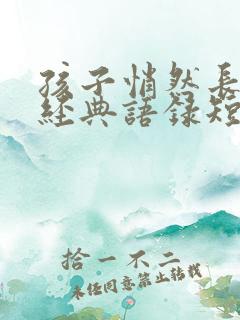 孩子悄然長
經典語錄短
拾一不二
未经同意禁止转载